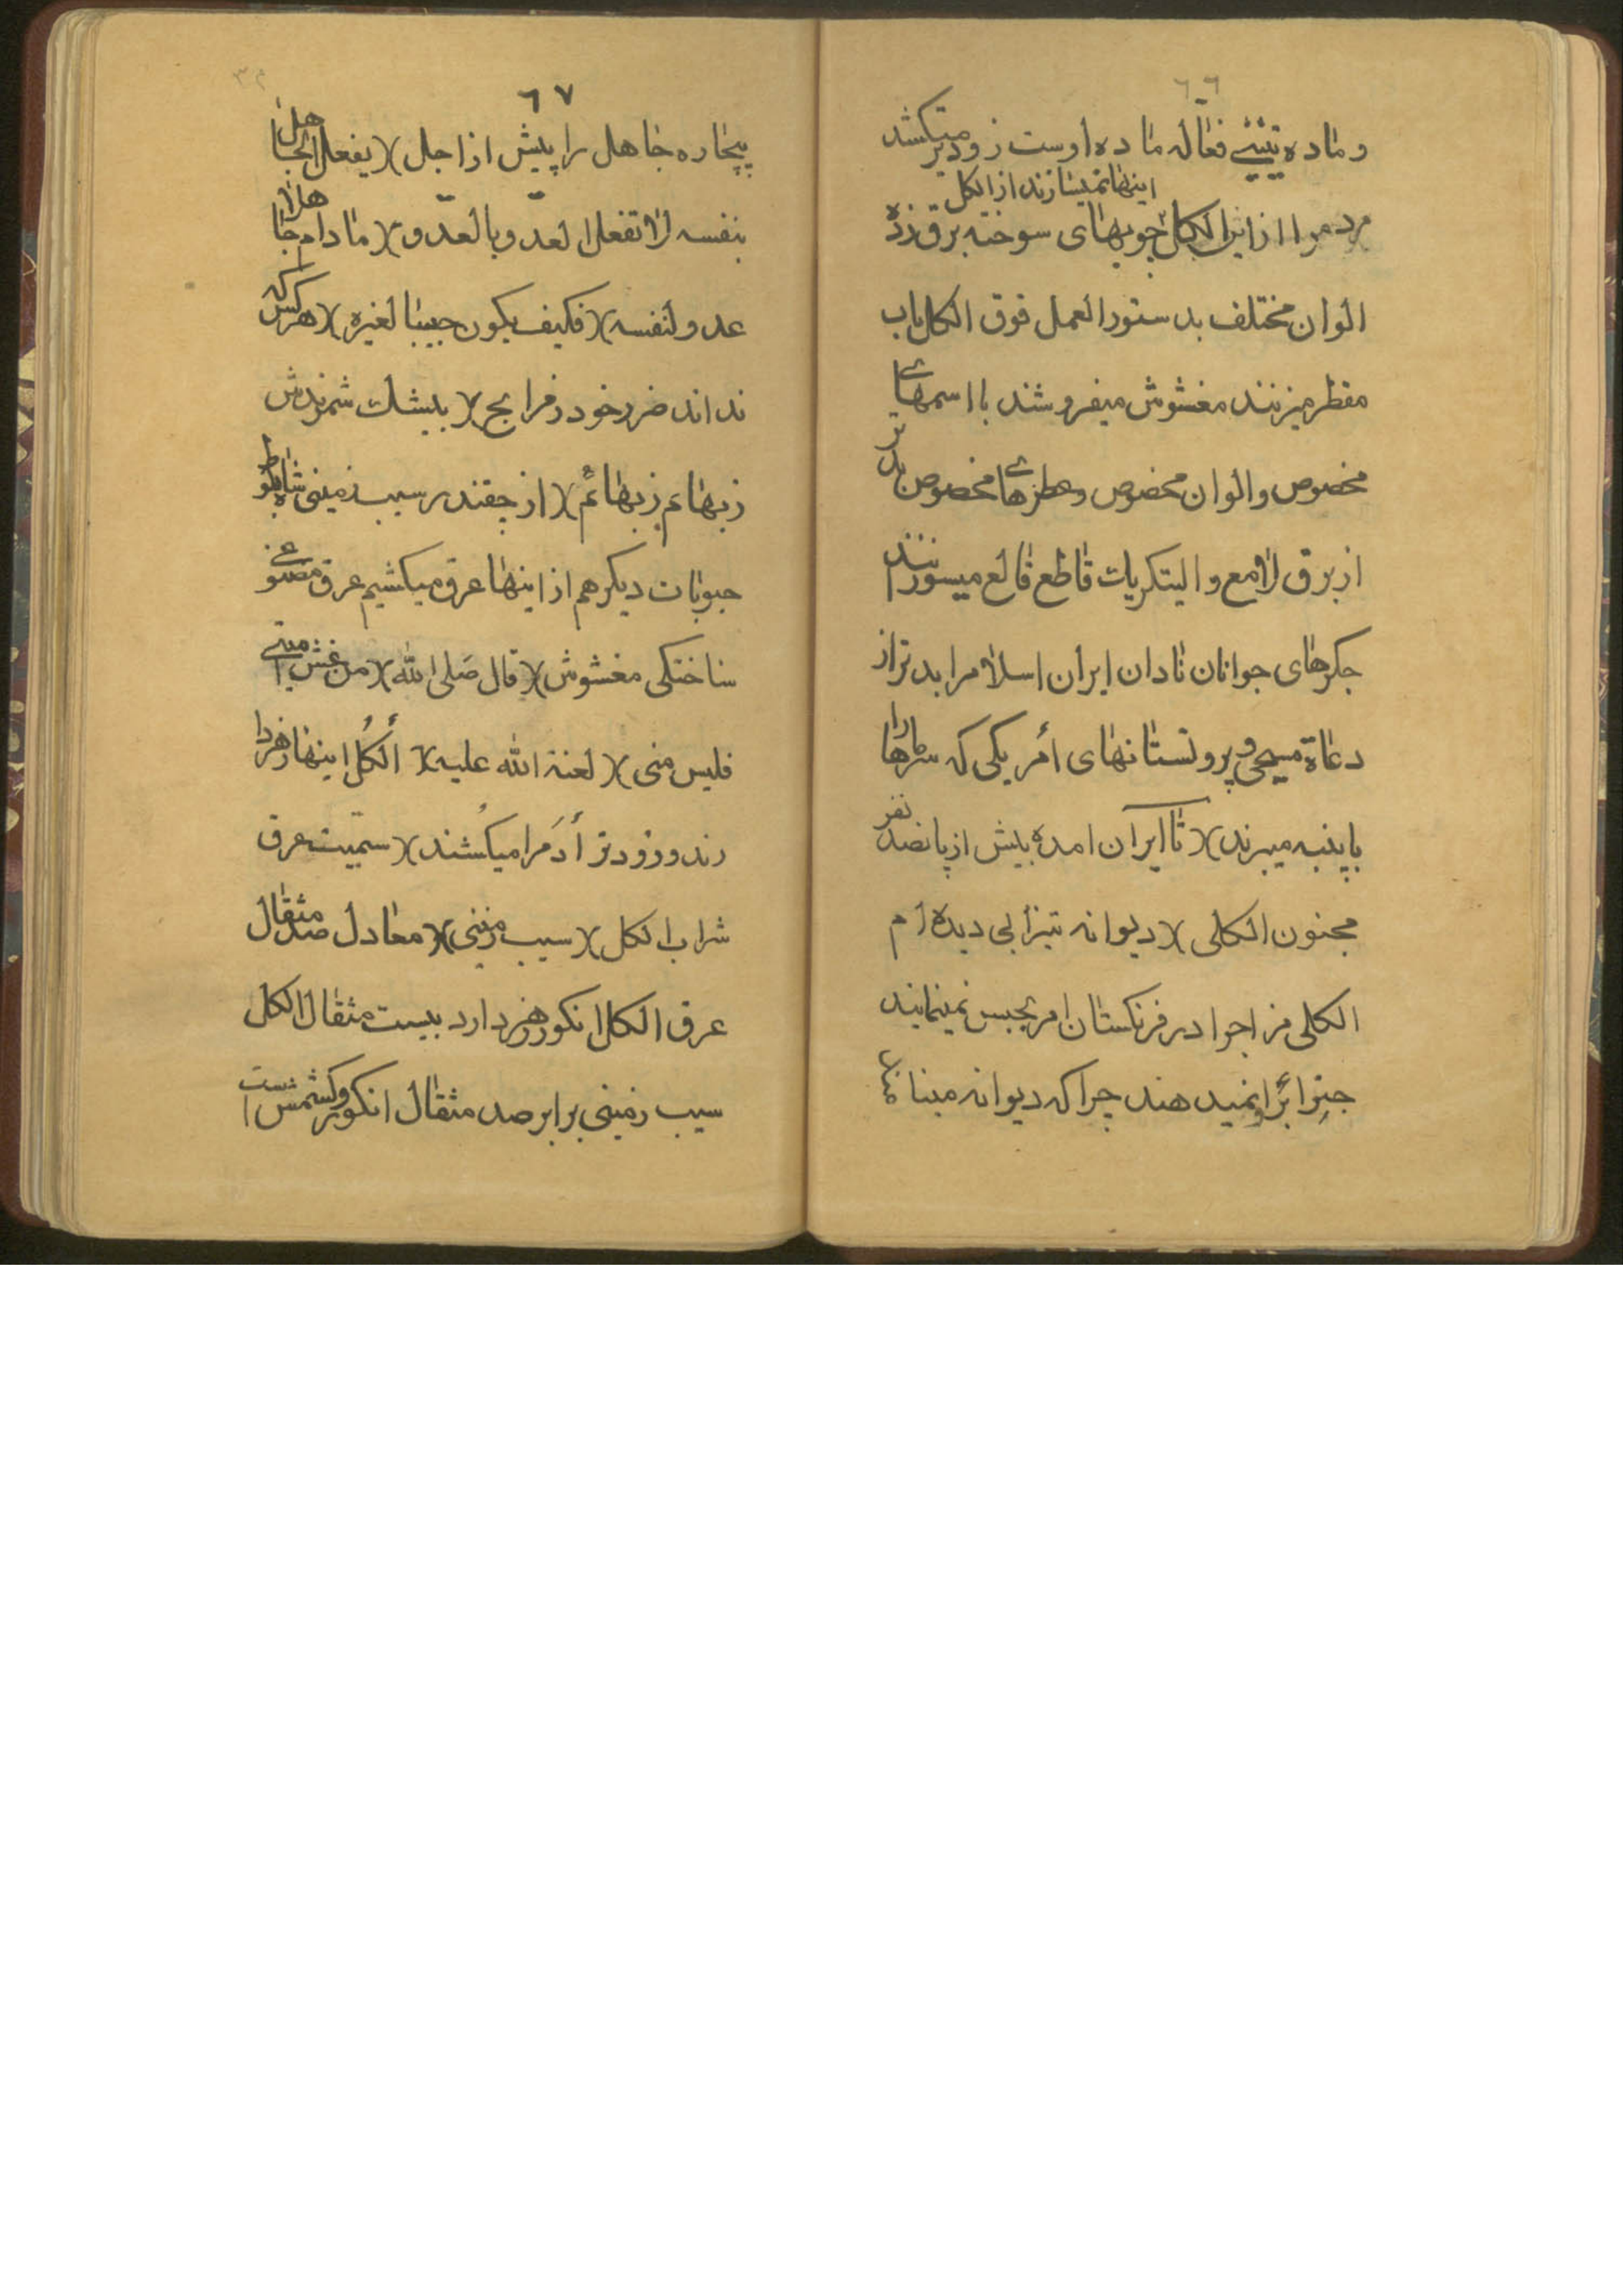 ٦٦
و ماده تیتیے فعاله ماده اوست زودتر میکشد
اینها میسازند از الکل
مردم را از این الکل چوبهای سوخته برق زده
الوان مختلف بدستور العمل فوق الکل باب
مقطر میزنند مغشوش میفروشند با اسمهاے
مخصوص و الوان مخصوص و عطرهاے مخصوص بدتر
از برق لامع و الیتکریات قاطع قالع میسوزنند
جکرهای جوانان نادان ایران اسلام را بدتر از
دعاة مسیحی و پروتستانهای أمریکی که سرهارا
با پنبه میبرند)( تا ایران امده بیش از پانصد نفر
مجنون الکلی )( دیوانه تیزابی دیده ام
الکلی مزاجرا در فرنکستان امر بحبس مینمایند
جزوا برا نمیدهند چرا که دیوانه
٦٧
بیچاره جاهل را پیش از اجل )( یفعل الجاهل
بنفسه لا تفعل العدو بالعدو )( ما دام جاهلا
عدو لنفسه )( فکیف یکون حبیبا لغیره )( هرکس که
نداند ضرر خود ز فرایح )( بیشك شمرندش
ز بهائم ز بهائم )( از چقندر سیب زمینی شاه بلوط
حبوبات دیکر هم از اینها عرق میکشیم عرق مصنوعے
ساختکی مغشوش )( قال صلی الله )( من غش امتے
فلیس منی )( لعنة الله علیه )( ألکُل اینها زهر دا
رند و زودتر أدَمرا میکُشند )( سمیّت عرق
شراب الکل )( سیب زمینی )( معادل صد مثقال
عرق الکل انکور زهر دارد بیست مثقال الکل
سیب زمینی برابر صد مثقال انکور و کشمش است